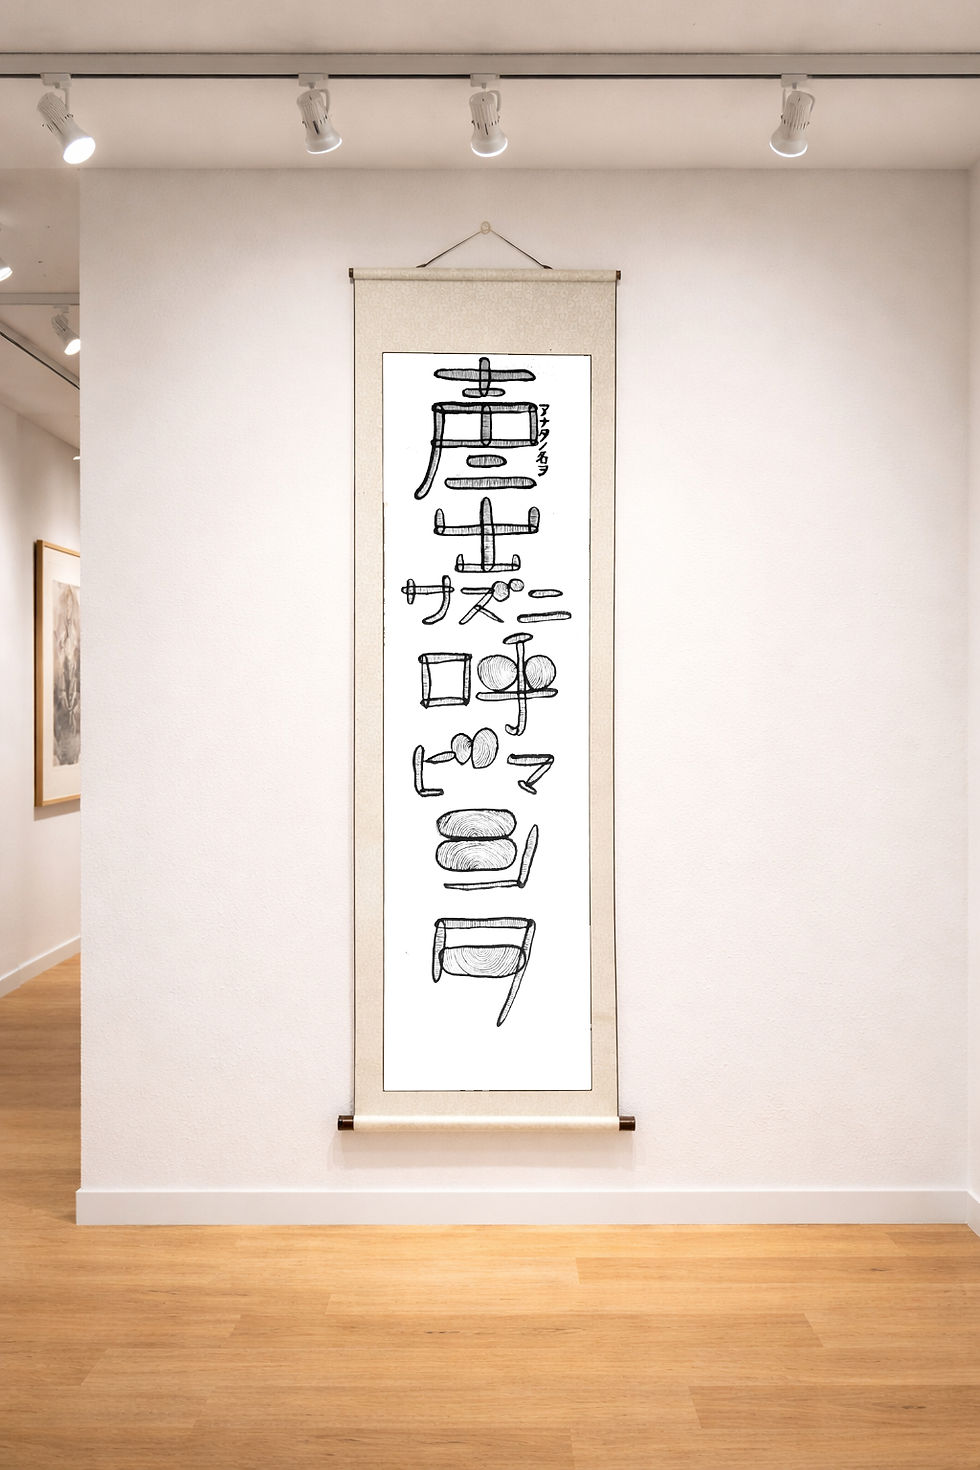 アナタノ名ヲ
声ニ
出
サズニ
呼
ビマ
シ
タ